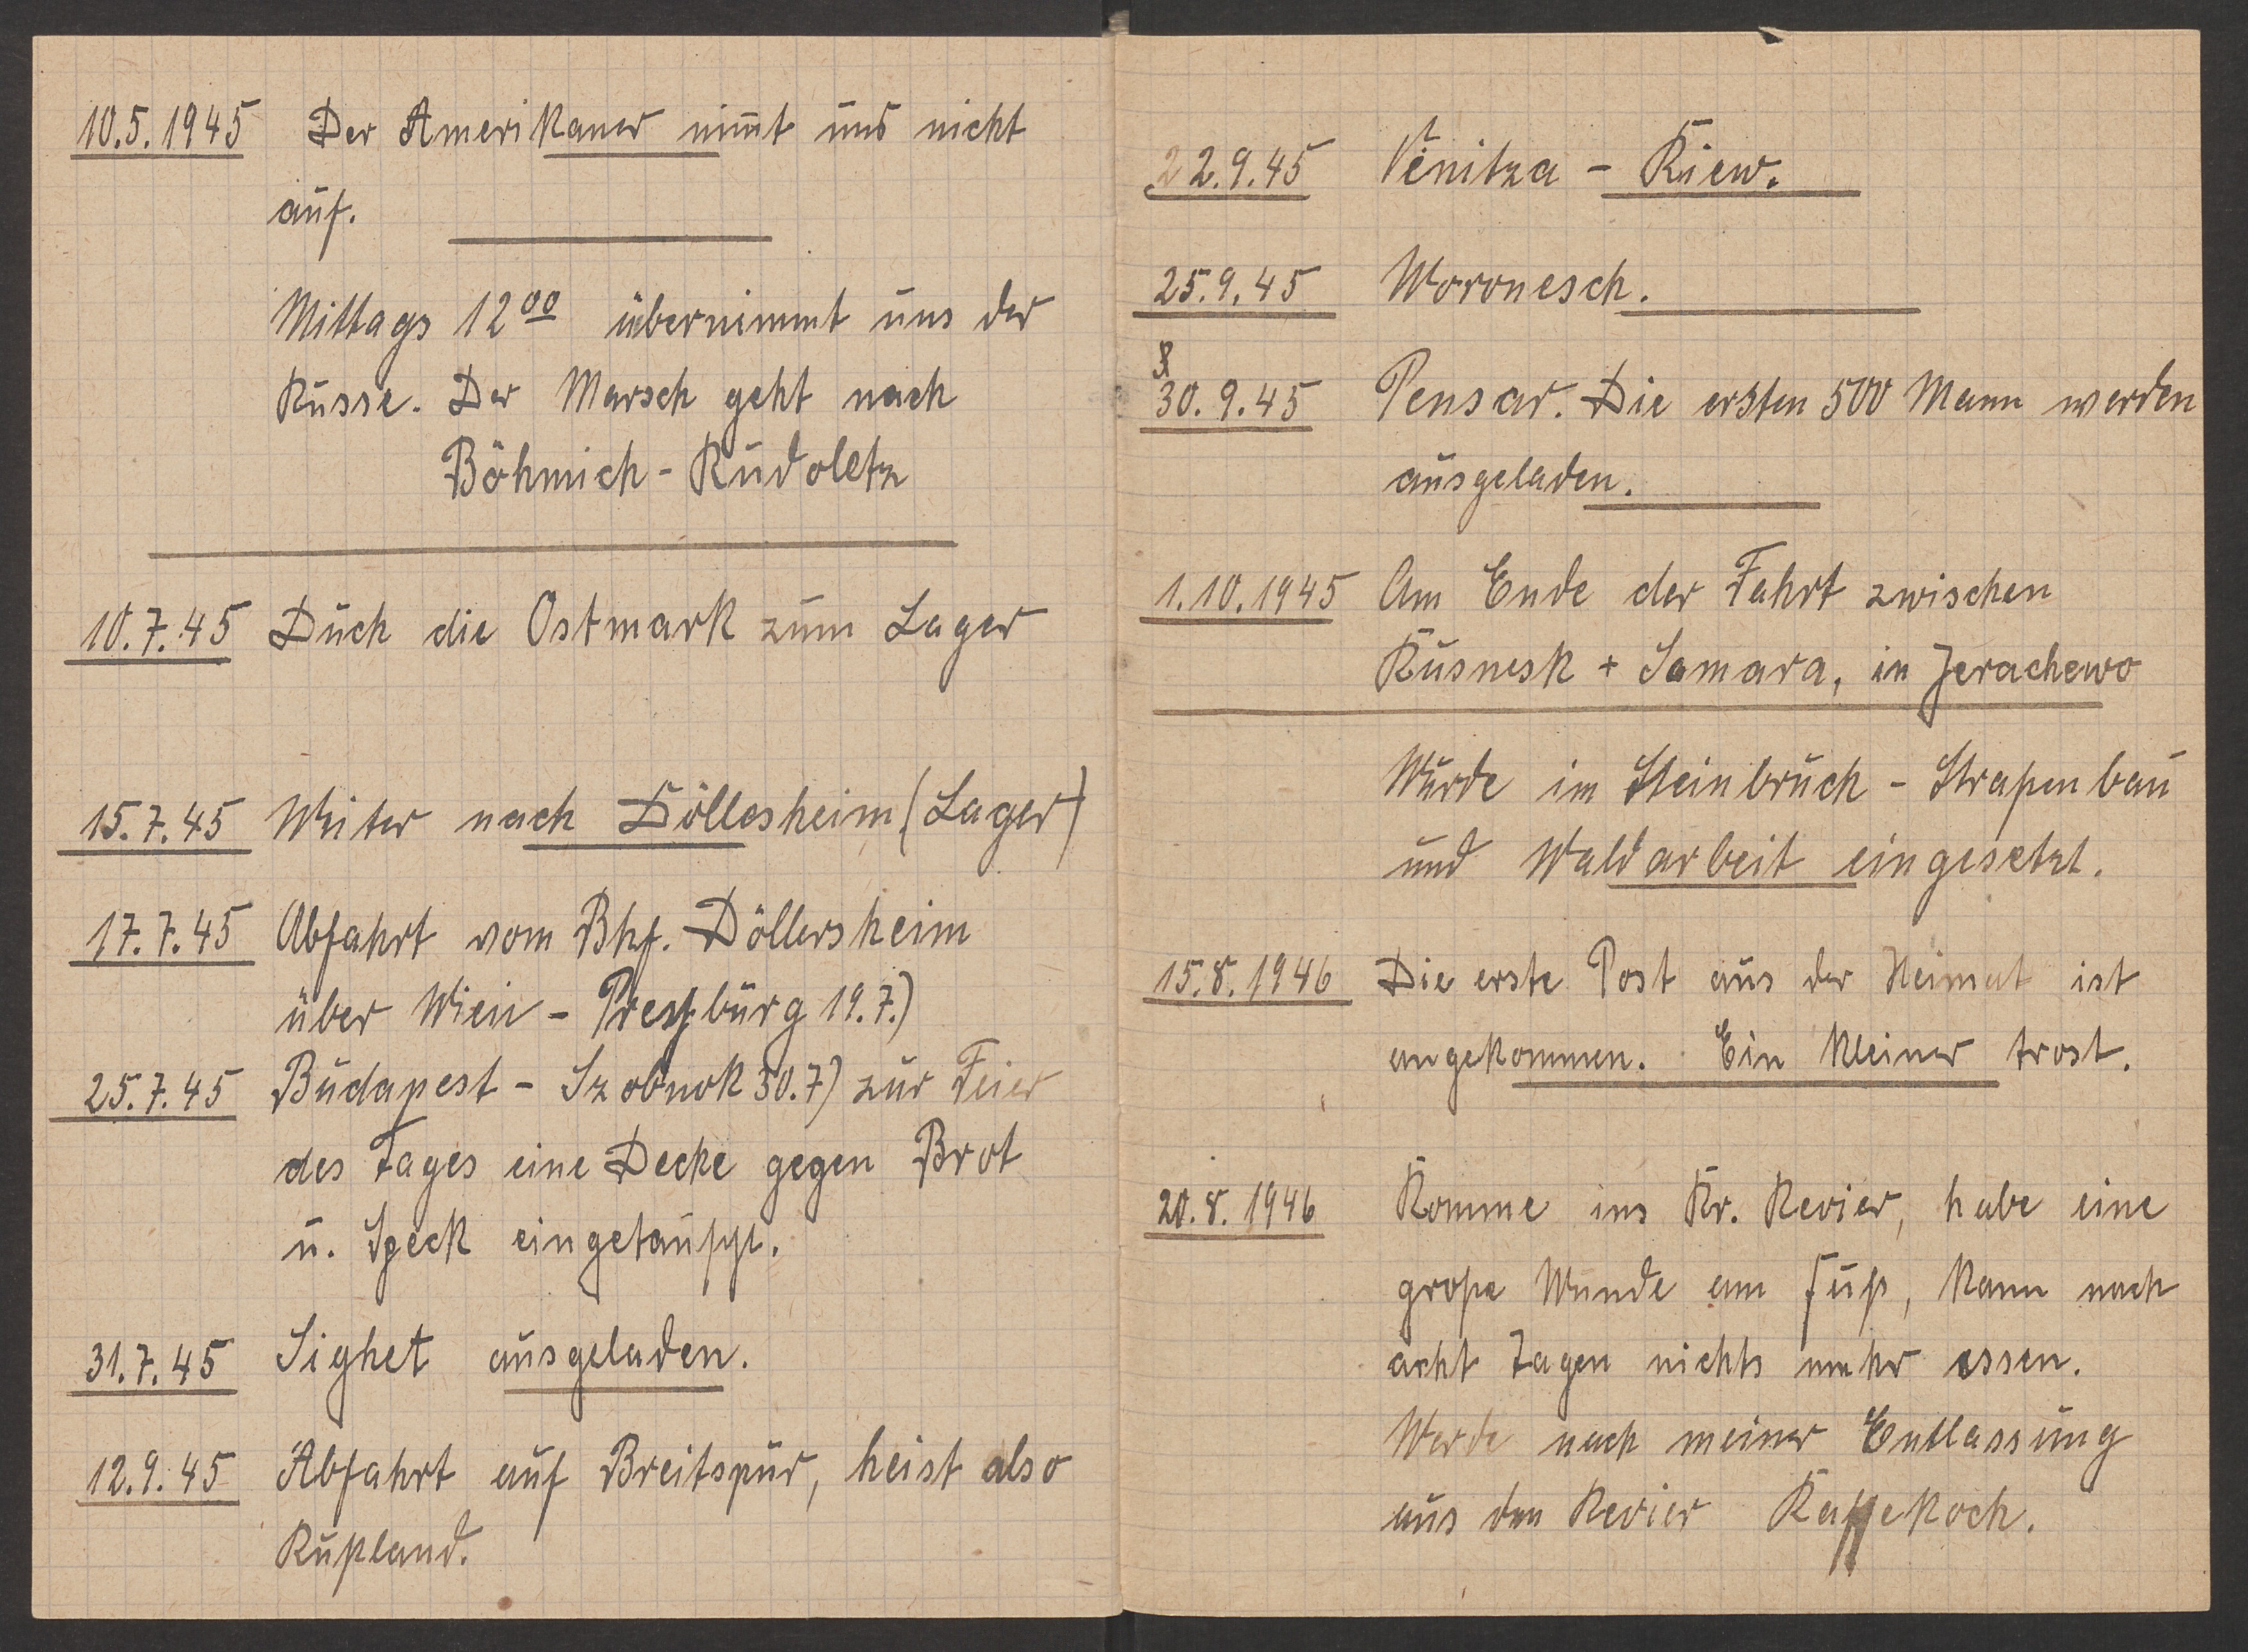 10.5.1945 Der Amerikaner nim̄t uns nicht
auf.
Mittags 12⁰⁰ übernimmt uns der
Russe. Der Marsch geht nach
Böhmich - Rudoletz
10.7.45 Duch die Ostmark zum Lager
15.7.45 Weiter nach Döllesheim (Lager)
17.7.45 Abfahrt vom Bhf. Döllersheim
über Wien - Preßburg 19.7.)
25.7.45 Budapest - Szobnok 30.7) zur Feier
des Tages eine Decke gegen Brot
u. Speck eingetauscht.
31.7.45 Sighet ausgeladen.
12.9.45 Abfahrt auf Breitspur, heist also
Rußland.
22.9.45 Venitza - Kiew.
25.9.45 Woronesch.
30.9.45 Pensar. Die ersten 500 Mann werden
ausgeladen.
1.10.1945 Am Ende der Fahrt zwischen
Kusnesk + Samara, in Jerachewo
Wurde im Steinbruch - Straßenbau
und Waldarbeit eingesetzt.
15.8.1946 Die erste Post aus der Heimat ist
angekommen. Ein kleiner trost.
20.8.1946 Komme ins Kr. Revier, habe eine
große Wunde am Fuß, kann nach
acht Tagen nichts mehr essen.
Werde nach meiner Entlassung
aus den Revier Kaffekoch.